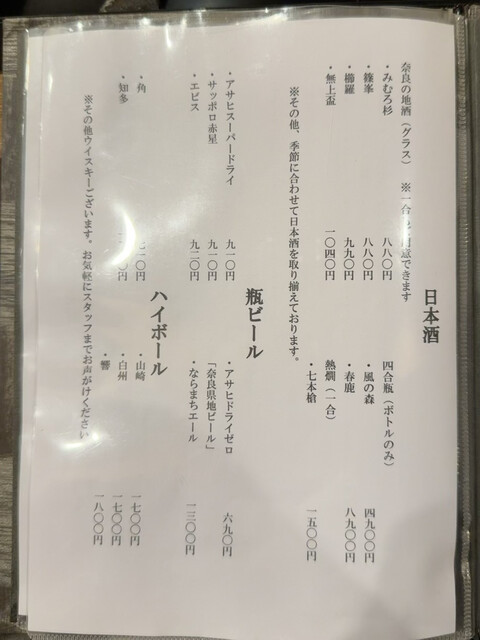 日本酒
奈良の地酒（グラス）　※一合
意できます
・みむろ杉　八八〇円
・篠峯　八八〇円
・櫛羅　九九〇円
・無上盃　一〇四〇円
四合瓶（ボトルのみ）
・風の森　四九〇〇円
・春鹿　八九〇〇円
熱燗（一合）
・七本槍　一五〇〇円
※その他、季節に合わせて日本酒を取り揃えております。
瓶ビール
・アサヒスーパードライ　九一〇円
・サッポロ赤星　九一〇円
・エビス　九二〇円
・アサヒドライゼロ　六九〇円
「奈良県地ビール」
・ならまちエール　一三〇〇円
ハイボール
・角
・知多
・山崎　一七〇〇円
・白州　一七〇〇円
・響　一八〇〇円
※その他ウイスキーございます。お気軽にスタッフまでお声がけください